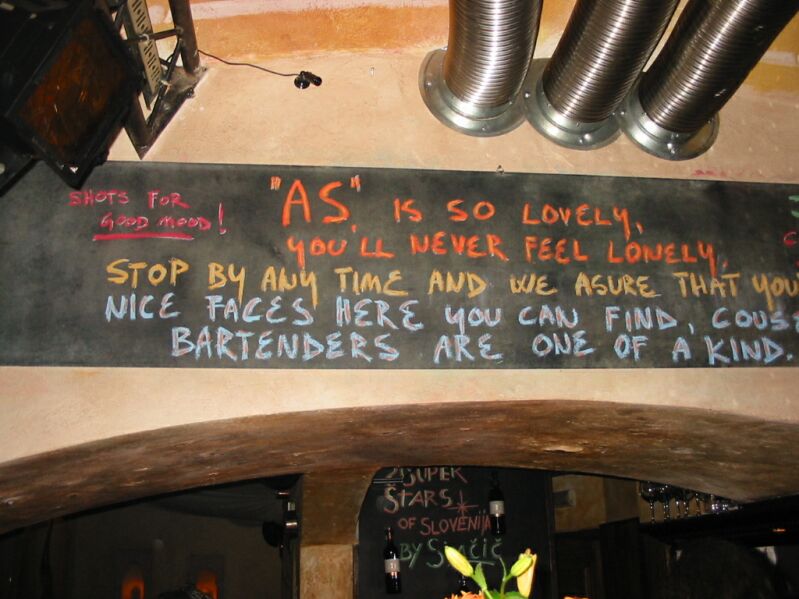 SHOTS FOR
GOOD MOOD!
"AS" IS SO LOVELY,
YOU'LL NEVER FEEL LONELY.
STOP BY ANY TIME AND WE ASURE THAT YOU
NICE FACES HERE YOU CAN FIND, COUSE
BARTENDERS ARE ONE OF A KIND.
SUPER
ŠTARS
OF SLOVENIJA
BY Simčič